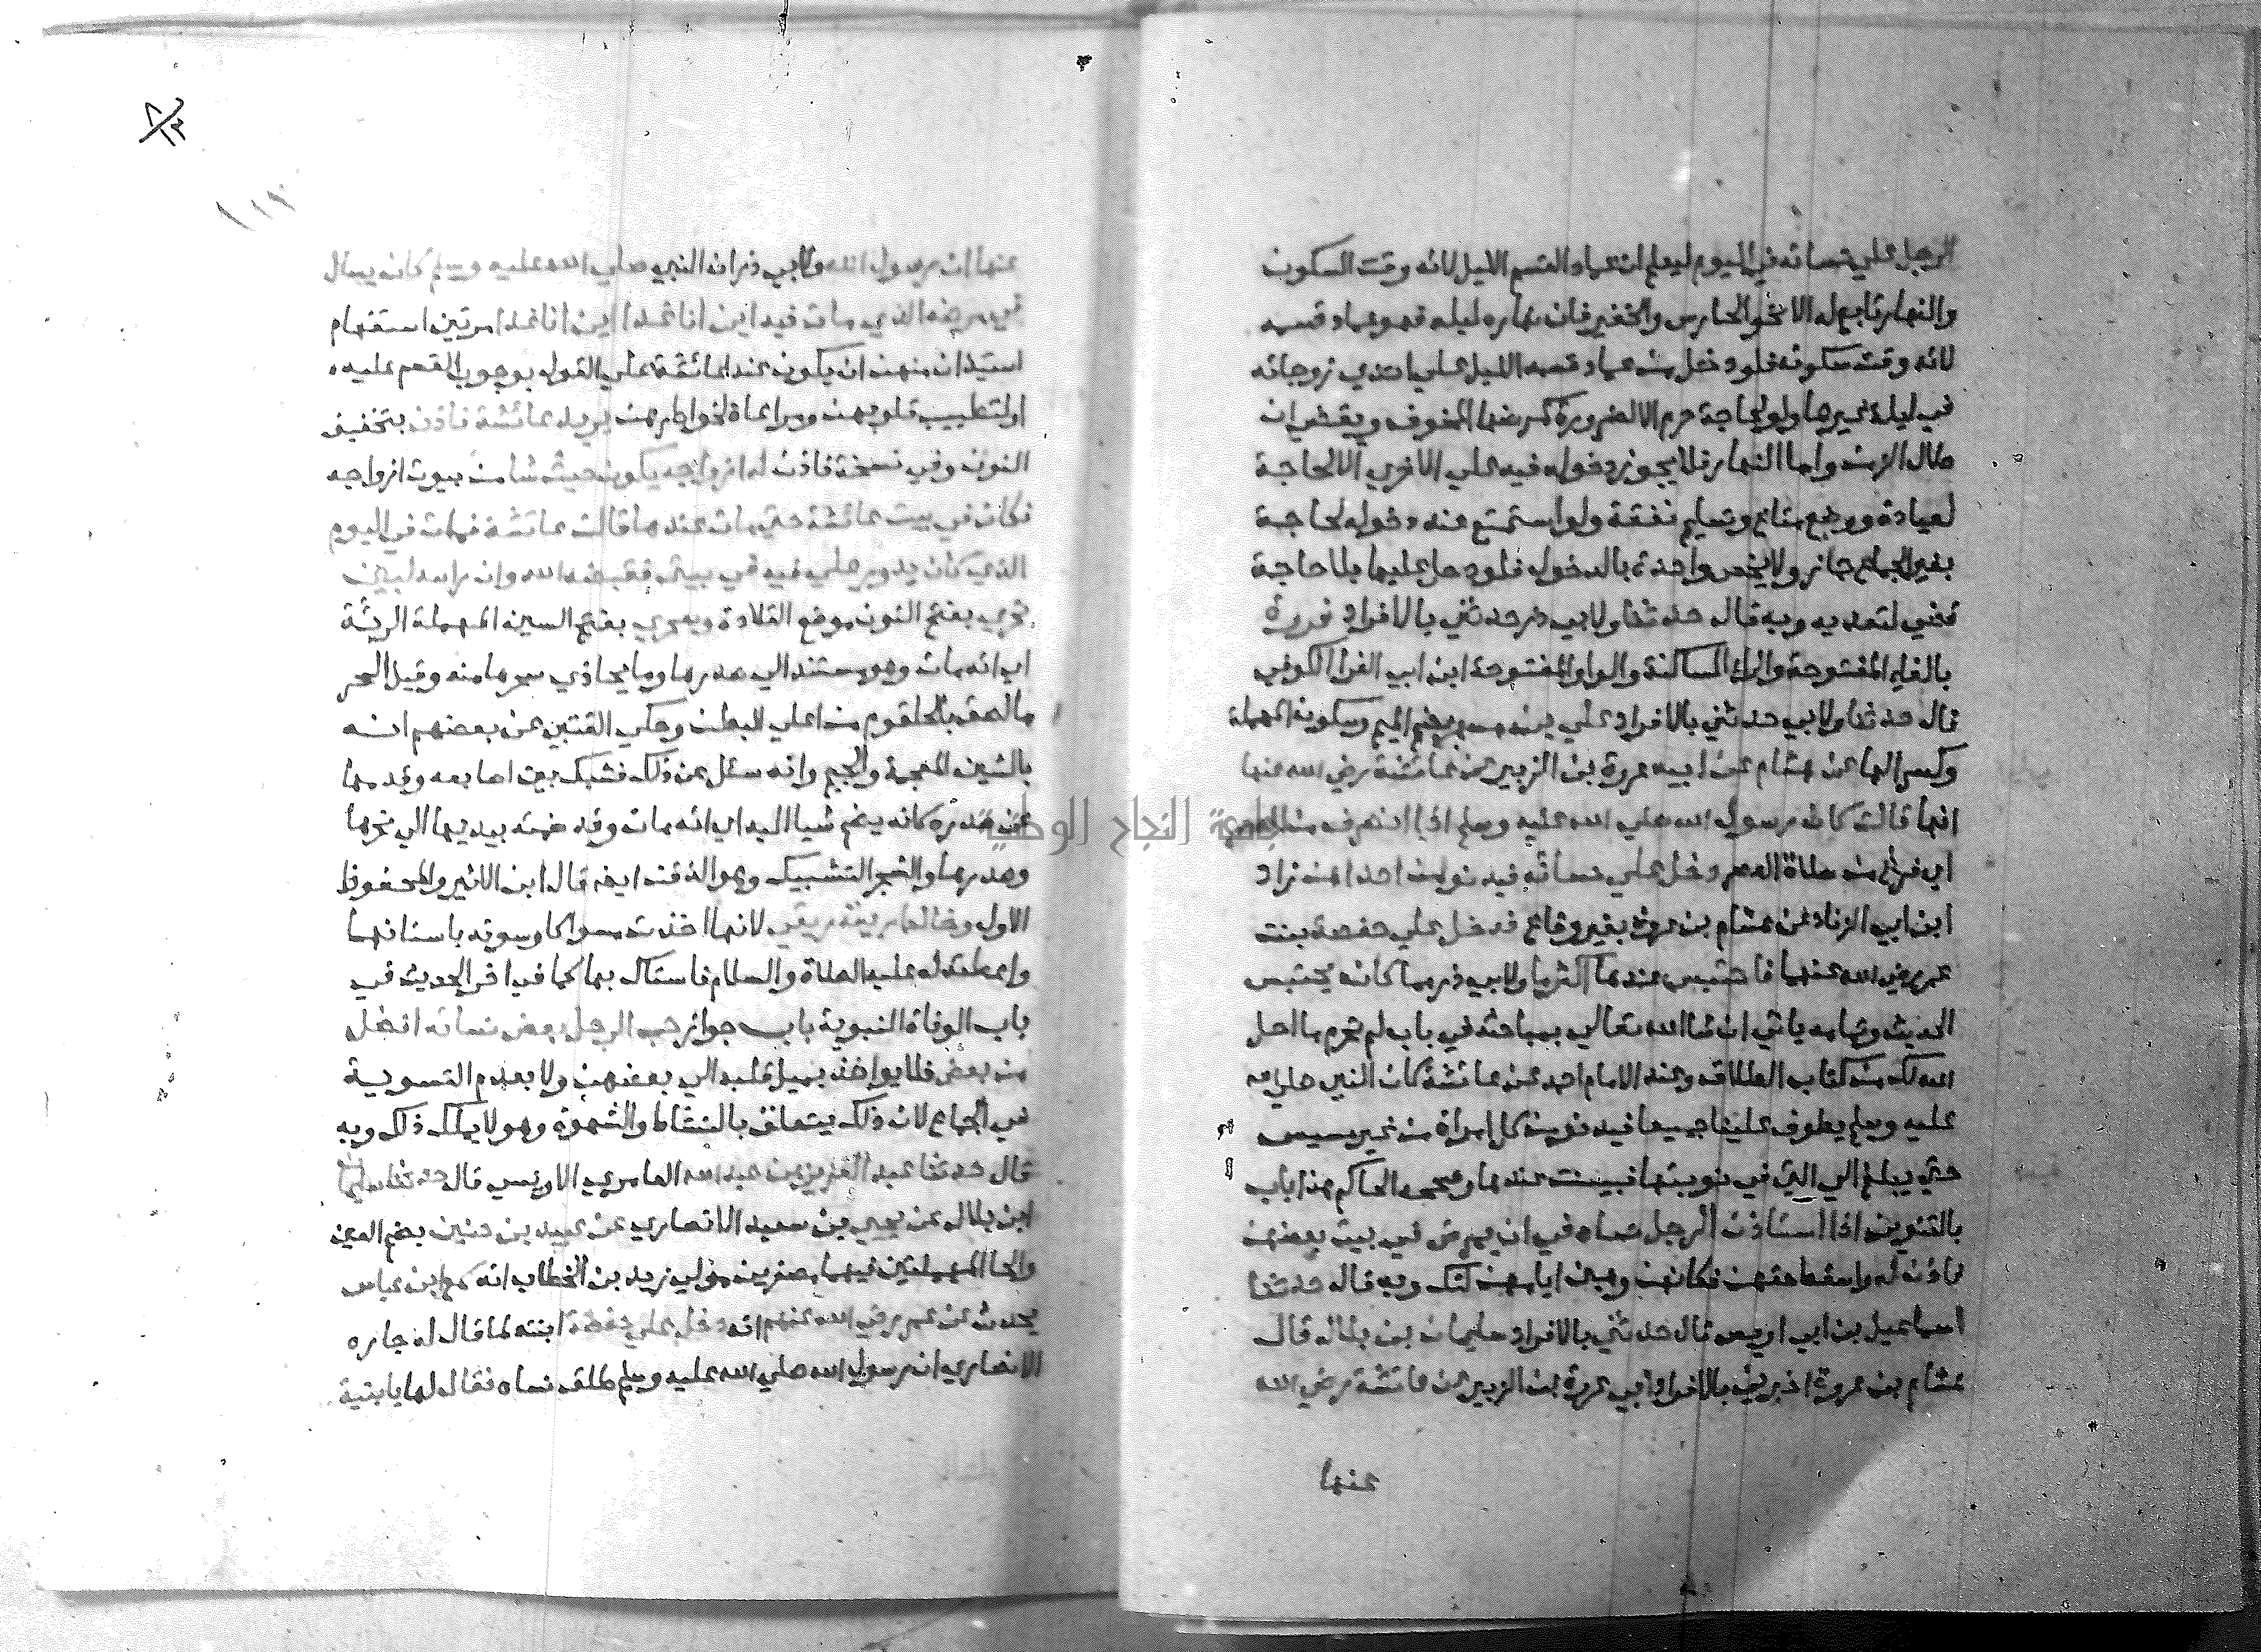 الرجل علي نسائه في اليوم ليعلم ان عماد القسم الليل لانه وقت السكون
والنهار تابع له الا نحو الحارس والخفير فان نهاره ليله فهو عماد قسمه
لانه وقت سكونه فلو دخل من عماد قسمه الليل علي احدي زوجاته
في ليلة غيرها ولو لحاجة حرم الا لضرورة كمرضها المخوف ويقضي ان
طال الزمن واما النهار فلا يجوز دخوله فيه علي الاخري الا لحاجة
لعيادة ووضع متاع وتسليم نفقة ولو استمتع عند دخوله لحاجة
بغير الجماع جاز ولا يخص واحدة بالدخول فلو دخل عليها بلا حاجة
قضي لتعديه وبه قال حدثنا ولابي ذر حدثني بالافراد فروة
بالفاء المفتوحة والراء الساكنة والواو المفتوحة ابن ابي المغرا الكوفي
قال حدثنا ولابي حدثني بالافراد علي بن مسهر بضم الميم وسكون المهملة
وكسر الها عن هشام عن ابيه عروة بن الزبير عن عائشة رضي الله عنها
انها قالت كان رسول الله صلي الله عليه وسلم اذا انصرف من العصر
اي فرغ من صلاة العصر دخل علي نسائه فيدنو من احداهن زاد
ابن ابي الزناد عن هشام بن عروة بغير وقاع فدخل علي حفصة بنت
عمر رضي الله عنهما فاحتبس عندها اكثر ما ولابي ذر مما كان يحتبس
الحديث وتمامه ياتي ان شا الله تعالي بمباحثه في باب لم تحرم ما احل
الله لك من كتاب الطلاق وعند الامام احمد عن عائشة كان النبي صلي الله
عليه وسلم يطوف علينا جميعا فيدنو من كل امراة من غير مسيس
حتي يبلغ الي التي في نوبتها فيبيت عندها وصححه الحاكم هذا باب
بالتنوين اذا استاذن الرجل نساه في ان يمرض في بيت بعضهن
فاذن له واسقط حقهن فكانهن وهبن ايامهن لتلك وبه قال حدثنا
اسماعيل بن ابي اويس قال حدثني بالافراد سليمان بن بلال قال
هشام بن عروة اخبرني بالافراد ابي عروة بن الزبير عن عائشة رضي الله
عنها
١١٣
عنها ان رسول الله ولابي ذر ان النبي صلي الله عليه وسلم كان يسال
في مرضه الذي مات فيه اين انا غدا اين انا غدا مرتين استفهام
استيذان منهن ان يكون عند عائشة علي القول بوجوب القسم عليه
او لتطييب قلوبهن ومراعاة لخواطرهن يريد عائشة فاذن بتخفيف
النون وفي نسخة فاذن له ازواجه يكون حيث شا من بيوت ازواجه
فكان في بيت عائشة حتي مات عندها قالت عائشة فمات في اليوم
الذي كان يدور علي فيه في بيتي فقبضه الله وان راسه لبين
نحري بفتح النون موضع القلادة وسحري بفتح السين المهملة الرئة
اي انه مات وهو مستند الي صدرها وما يحاذي سحرها منه وقيل السحر
ما لصق بالحلقوم من اعلي البطن وحكي القتبي عن بعضهم انه
بالشين المعجمة والجيم وانه سئل عن ذلك فشبك بين اصابعه وقدمها
عن صدره كانه يضم شيا اليه اي انه مات وقد ضمته بيديها الي نحرها
وصدرها والشجر التشبيك وهو الذقن ايضا قال ابن الاثير والمحفوظ
الاول وخالط ريقه ريقي لانها اخذت سواكا وسوته باسنانها
واعطته له عليه الصلاة والسلام فاستاك به كما في اخر الحديث في
باب الوفاة النبوية باب جواز حب الرجل بعض نسائه افضل
من بعض فلا يواخذ بميل قلبه الي بعضهن ولا بعدم التسوية
في الجماع لان ذلك يتعلق بالنشاط والشهوة وهو لا يملك ذلك وبه
قال حدثنا عبد العزيز بن عبد الله العامري الاويسي قال حدثنا سليمان
ابن بلال عن يحيي بن سعيد الانصاري عن عبيد بن حنين بضم العين
والحا المهملتين فيهما مصغرين مولي زيد بن الخطاب انه سمع ابن عباس
يحدث عن عمر رضي الله عنهم انه دخل علي حفصة ابنته لما قال له جاره
الانصاري ان رسول الله صلي الله عليه وسلم طلق نساه فقال لها يا بنية
جامعة النجاح الوطنية